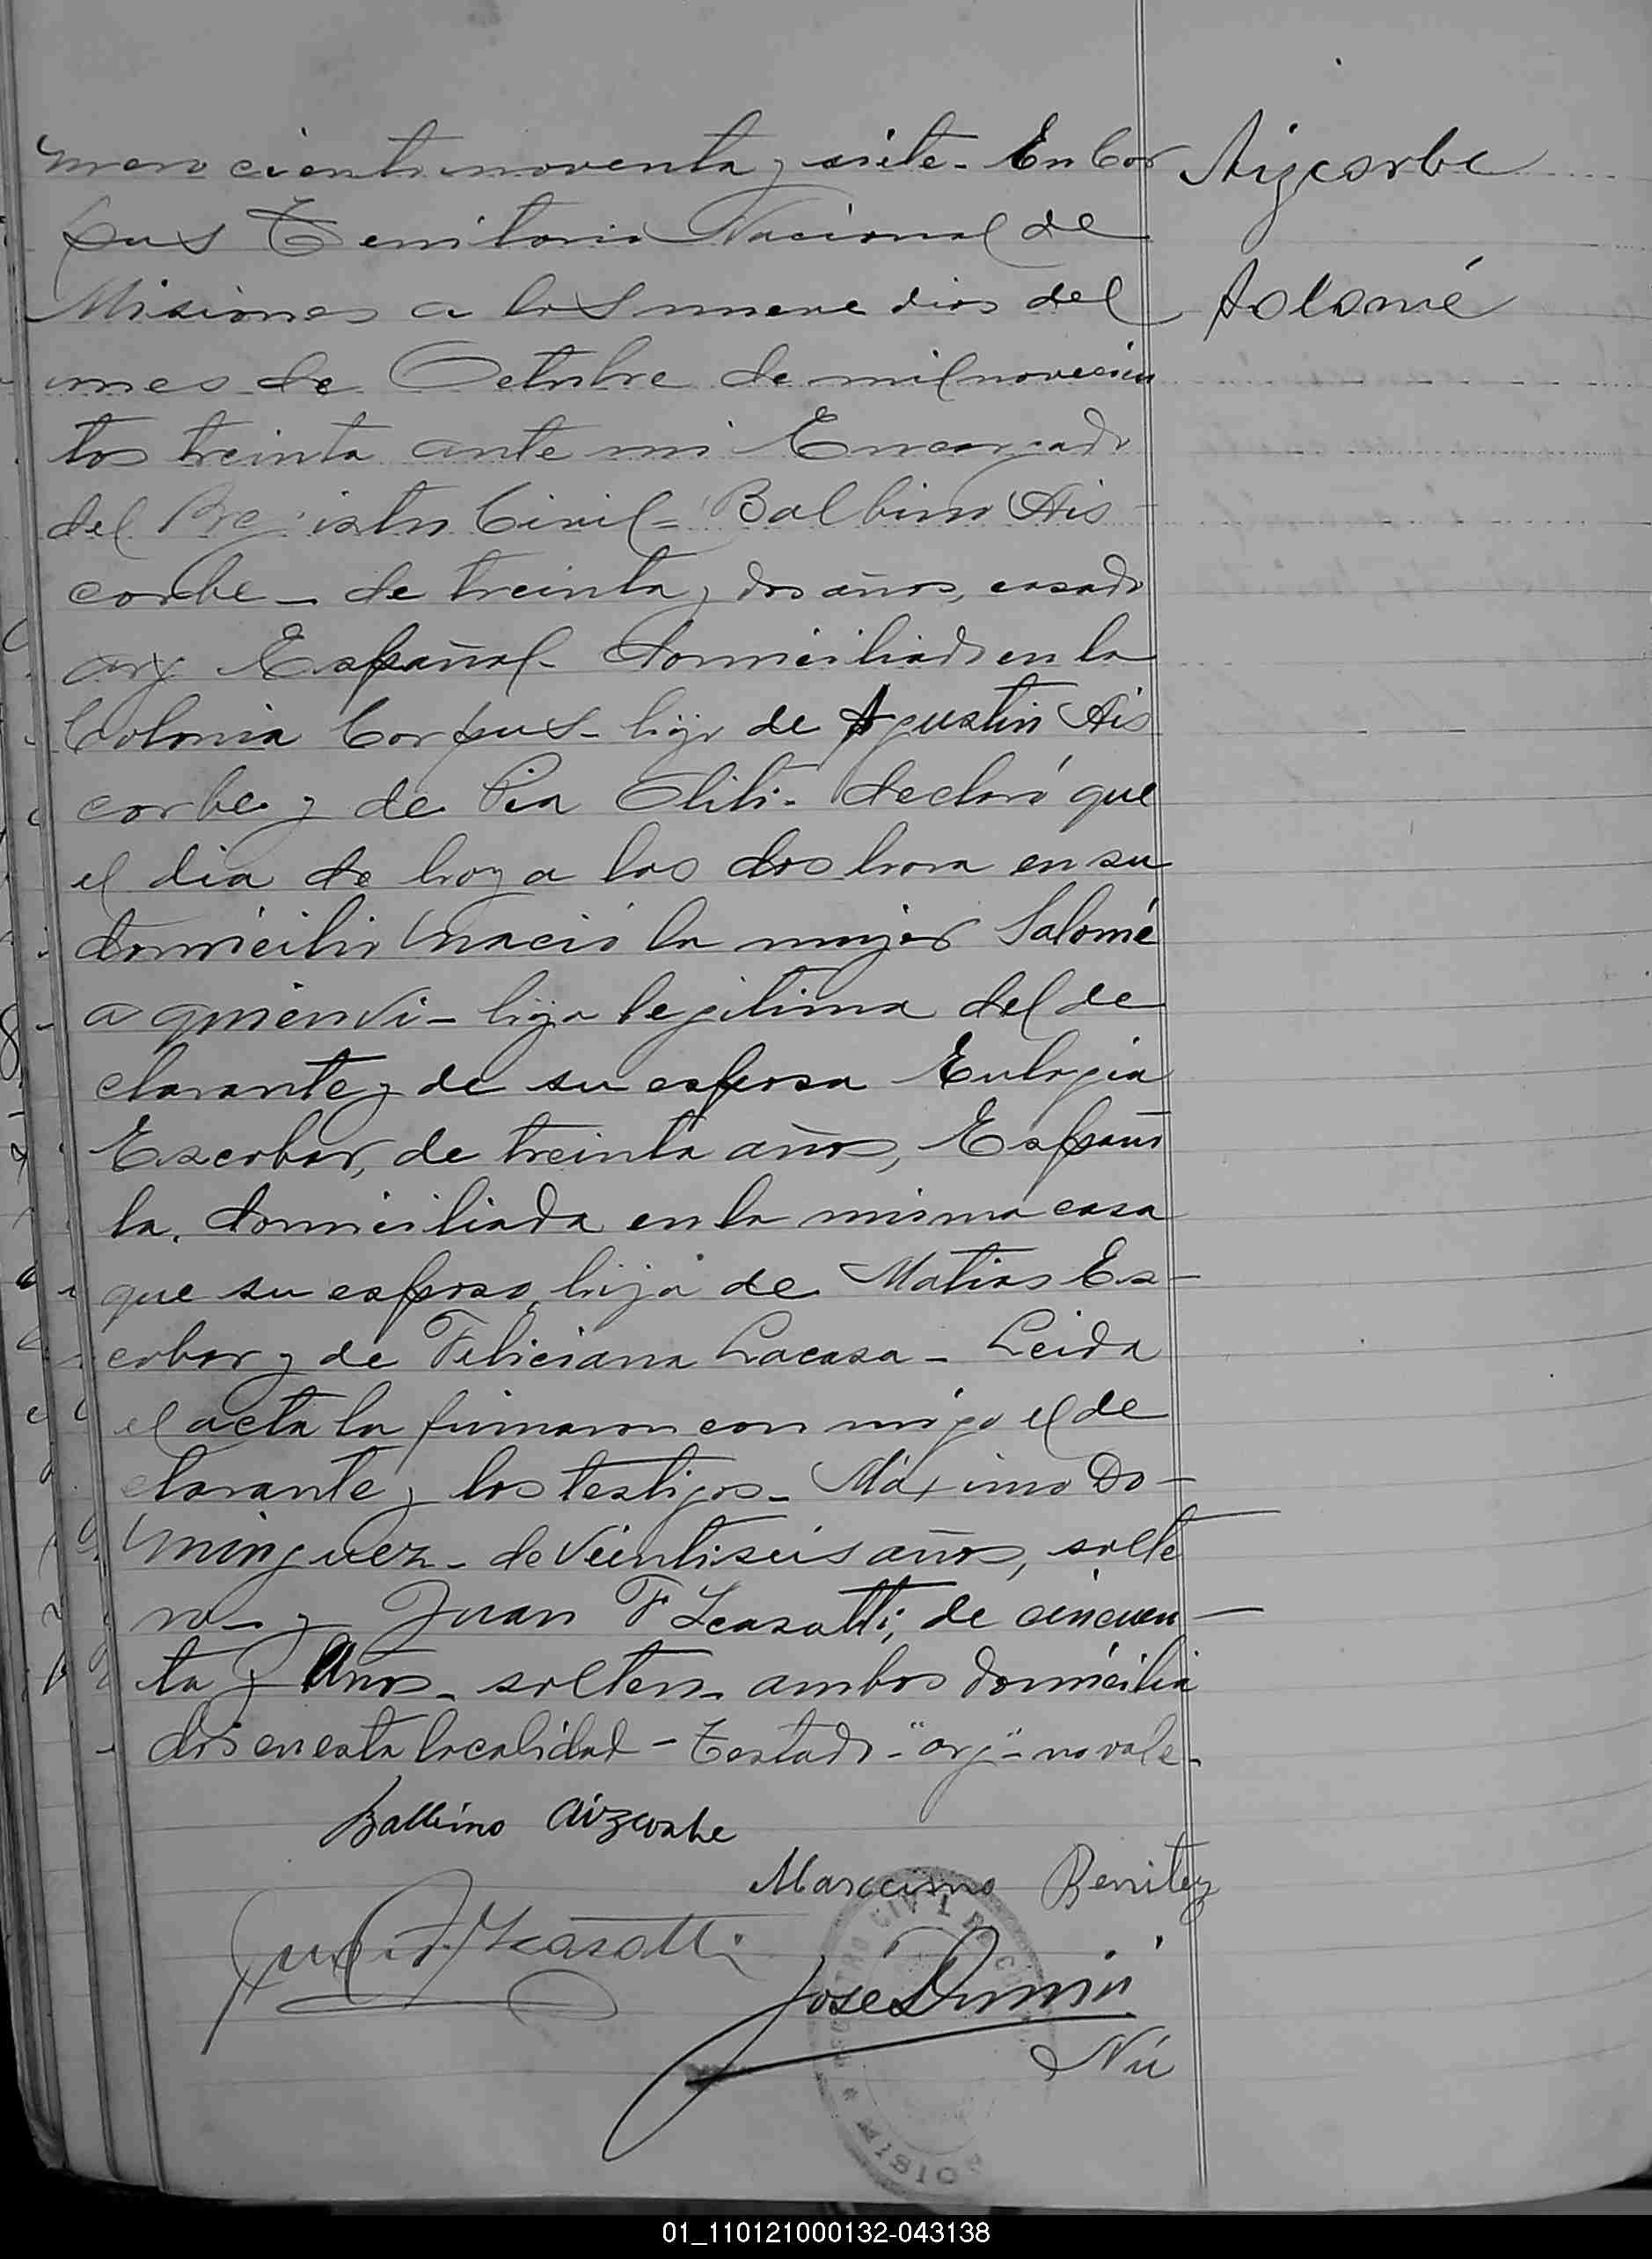 mero ciento noventa y siete. En Cor
pus Territorio Nacional de
Misiones a los nueve dias del
mes de Octubre de mil novecien
tos treinta ante mi Encargado
del Registro Civil = Balbino Ais
corbe - de treinta y dos años, casado
arg Español - domiciliado en la
Colonia Corpus - hijo de Agustin Ais
corbe y de Pia - declaró que
el dia de hoy a las dos hora en su
domicilio nació la mujer Salomé
a quien vi - hija legitima del de
clarante y de su esposa Eulogia
Escobar, de treinta años, Españo
la, domiciliada en la misma casa
que su esposo, hija de Matias Es-
cobar y de Feliciana Lacasa - Leida
el acta la firmaron con migo el de
clarante y los testigos - Máximo Do-
minguez - de veintiseis años, solte
ro - y Juan F Scasatti, de cincuen-
ta y años - soltero - ambos domicilia
dos en esta localidad - Testado - "arg" - no vale -
Aizcorbe
Salomé
Balbino Aizcorbe
Marccimo Benitez
Juan F. Scasatti
José
REGISTRO CIVIL
01_110121000132-043138